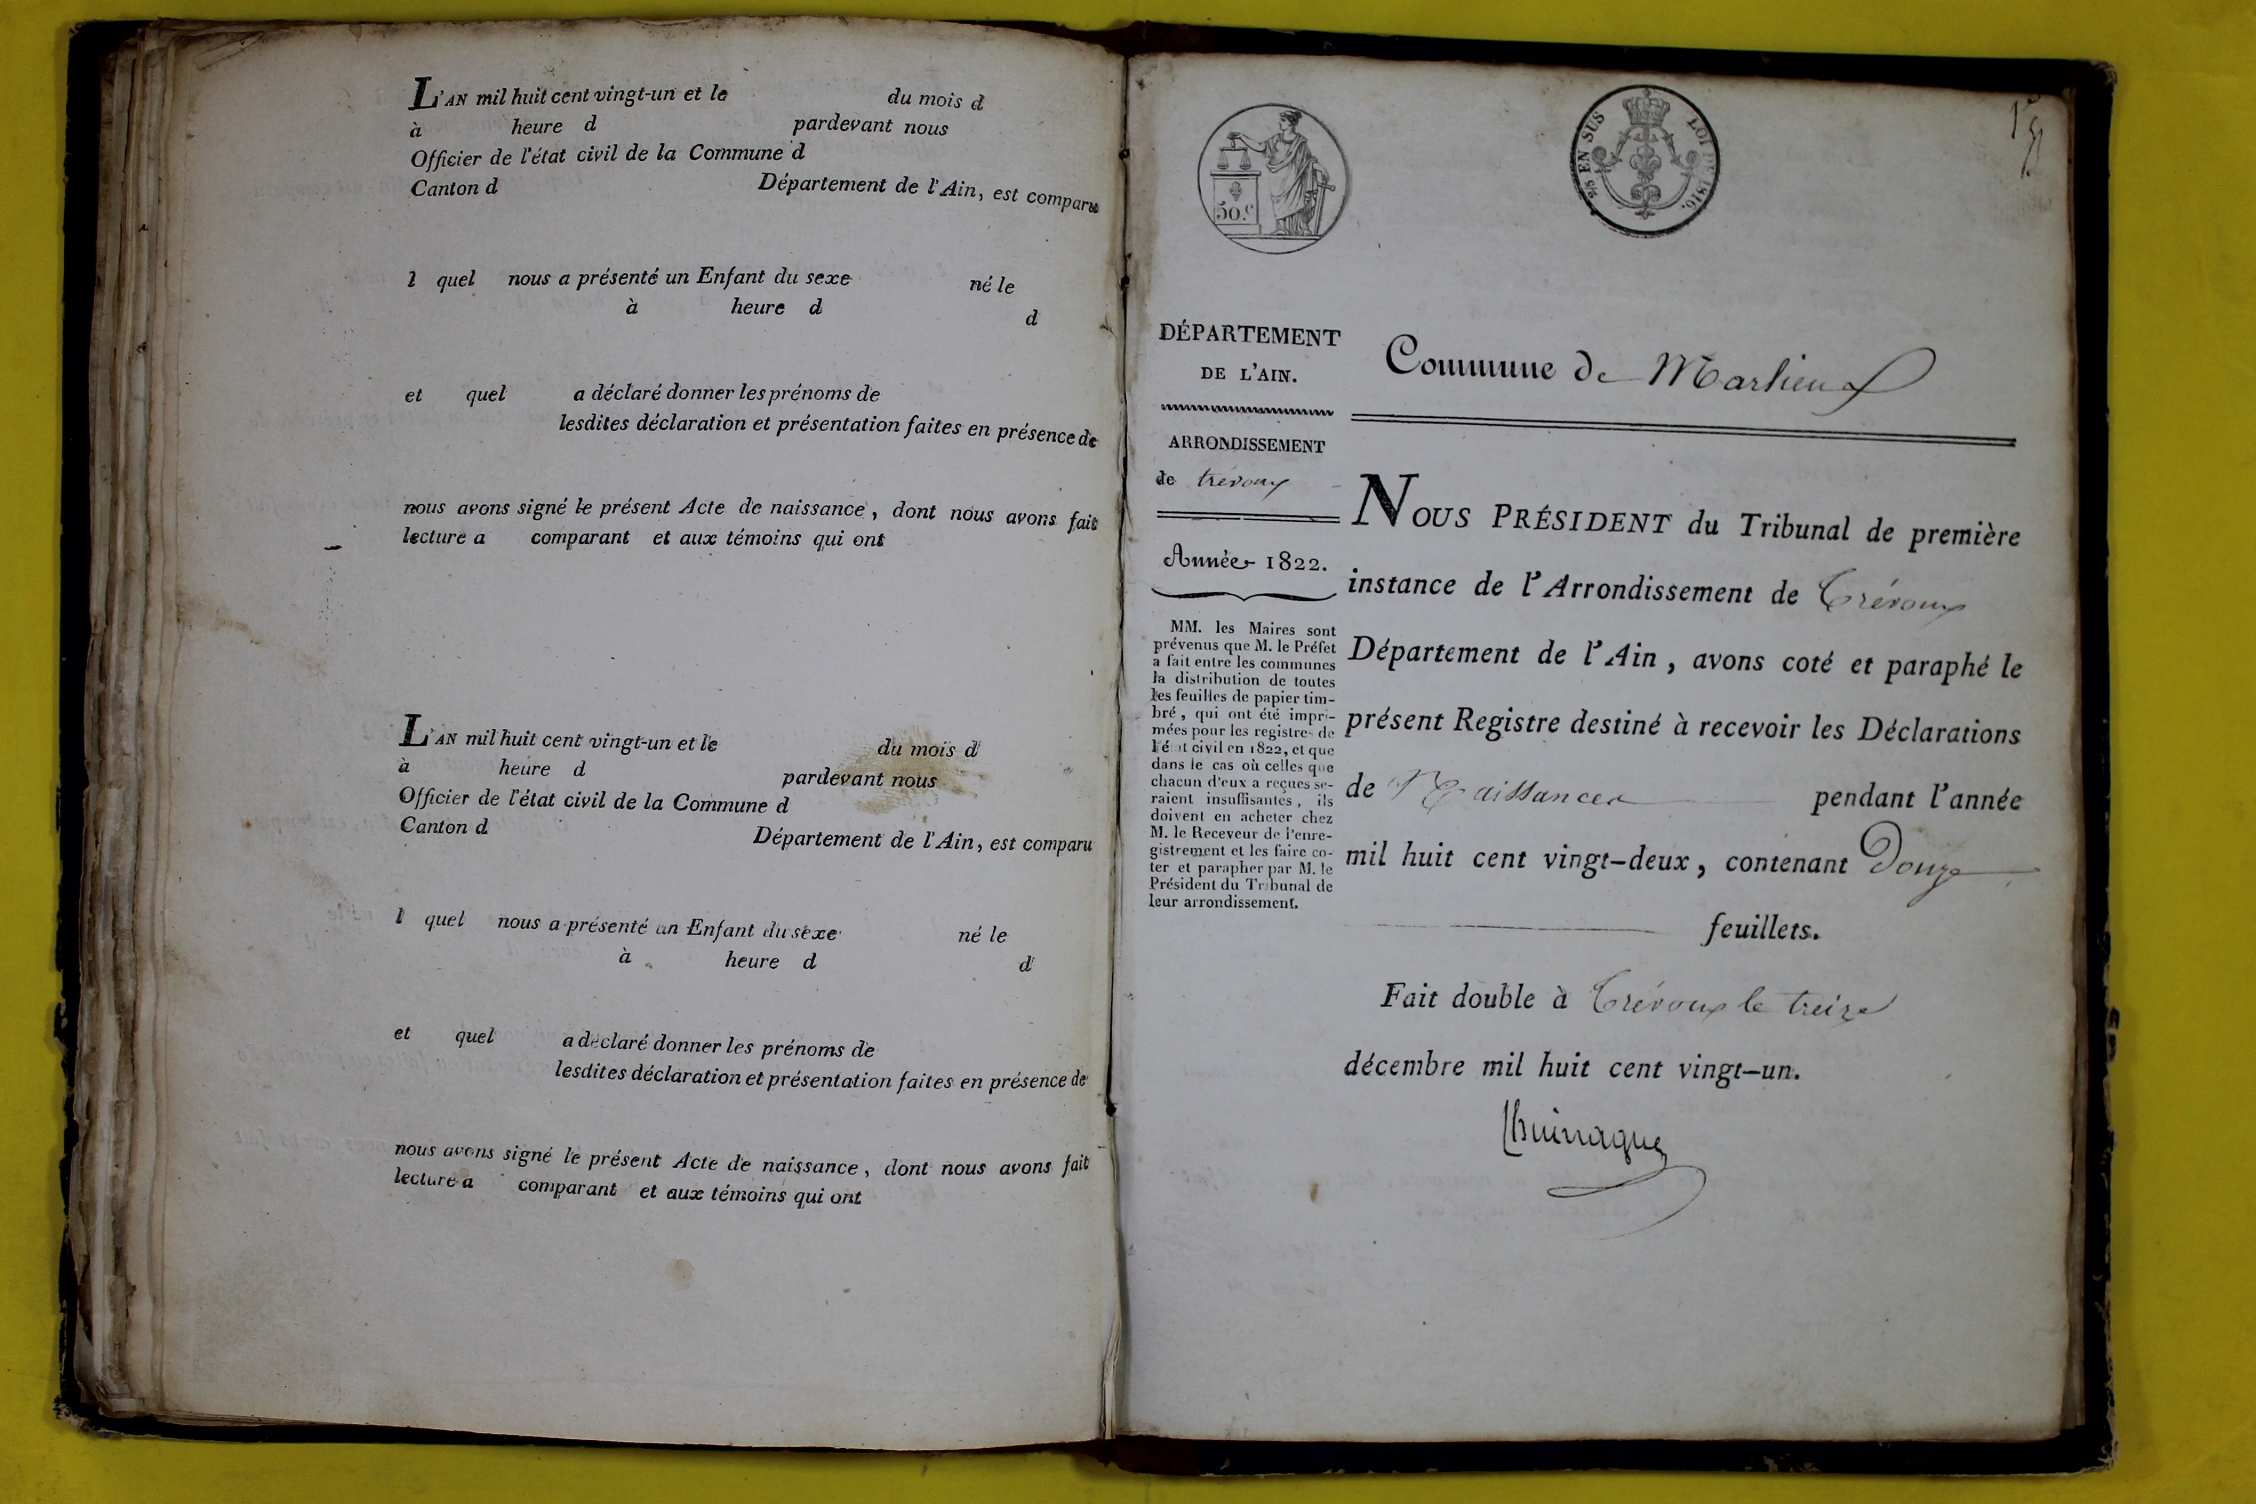 L'AN mil huit cent vingt-un et le du mois d
à heure d pardevant nous
Officier de l'état civil de la Commune d
Canton d Département de l'Ain, est comparu
l quel nous a présenté un Enfant du sexe né le
à heure d d
et quel a déclaré donner les prénoms de
lesdites déclaration et présentation faites en présence de
nous avons signé le présent Acte de naissance, dont nous avons fait
lecture a comparant et aux témoins qui ont
L'AN mil huit cent vingt-un et le du mois d
à heure d pardevant nous
Officier de l'état civil de la Commune d
Canton d Département de l'Ain, est comparu
l quel nous a présenté un Enfant du sexe né le
à heure d d
et quel a déclaré donner les prénoms de
lesdites déclaration et présentation faites en présence de
nous avons signé le présent Acte de naissance, dont nous avons fait
lecture a comparant et aux témoins qui ont
50.c
EN SUS LOI DE 1816.
DÉPARTEMENT
DE L'AIN.
ARRONDISSEMENT
de trévoux
Année 1822.
MM. les Maires sont
prévenus que M. le Préfet
a fait entre les communes
la distribution de toutes
les feuilles de papier tim-
bré, qui ont été impri-
mées pour les registres de
l'état civil en 1822, et que
dans le cas où celles que
chacun d'eux a reçues se-
raient insuffisantes, ils
doivent en acheter chez
M. le Receveur de l'enre-
gistrement et les faire co-
ter et parapher par M. le
Président du Tribunal de
leur arrondissement.
Commune de Marlieux
NOUS PRÉSIDENT du Tribunal de première
instance de l'Arrondissement de Trévoux
Département de l'Ain, avons coté et paraphé le
présent Registre destiné à recevoir les Déclarations
de Naissances pendant l'année
mil huit cent vingt-deux, contenant Douze
feuillets.
Fait double à Trévoux le treize
décembre mil huit cent vingt-un.